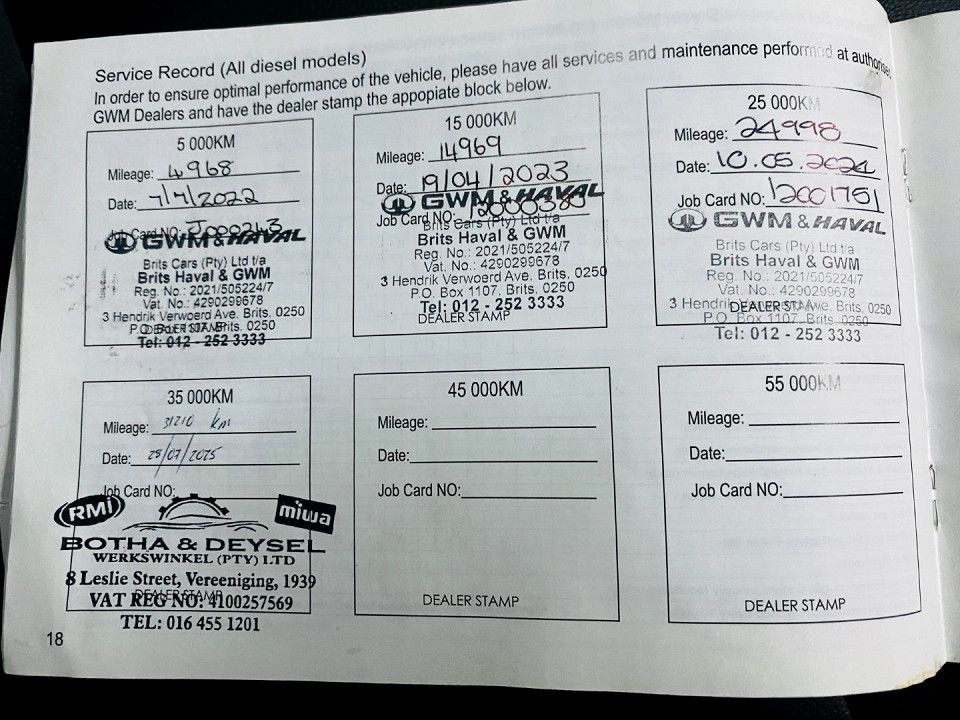 Service Record (All diesel models)
In order to ensure optimal performance of the vehicle, please have all services and maintenance performed at authorise
GWM Dealers and have the dealer stamp the appopiate block below.
5 000KM
Mileage: 4968
Date: 7/7/2022
Job Card NO: J000243
GWM & HAVAL
Brits Cars (Pty) Ltd t/a
Brits Haval & GWM
Reg. No.: 2021/505224/7
Vat. No.: 4290299678
3 Hendrik Verwoerd Ave. Brits. 0250
P.O. Box 1107, Brits. 0250
DEALER STAMP
Tel: 012 - 252 3333
15 000KM
Mileage: 14969
Date: 19/04/2023
Job Card NO: 12000380
GWM & HAVAL
Brits Cars (Pty) Ltd t/a
Brits Haval & GWM
Reg. No.: 2021/505224/7
Vat. No.: 4290299678
3 Hendrik Verwoerd Ave. Brits. 0250
P.O. Box 1107, Brits. 0250
Tel: 012 - 252 3333
DEALER STAMP
25 000KM
Mileage: 24998
Date: 10.05.2024
Job Card NO: 12001751
GWM & HAVAL
Brits Cars (Pty) Ltd t/a
Brits Haval & GWM
Reg. No.: 2021/505224/7
Vat. No.: 4290299678
3 Hendrik Verwoerd Ave. Brits. 0250
DEALER STAMP
P.O. Box 1107, Brits. 0250
Tel: 012 - 252 3333
35 000KM
Mileage: 31210 km
Date: 28/07/2025
Job Card NO:
RMi
miwa
BOTHA & DEYSEL
WERKSWINKEL (PTY) LTD
8 Leslie Street, Vereeniging, 1939
DEALER STAMP
VAT REG NO: 4100257569
TEL: 016 455 1201
45 000KM
Mileage:
Date:
Job Card NO:
DEALER STAMP
55 000KM
Mileage:
Date:
Job Card NO:
DEALER STAMP
18